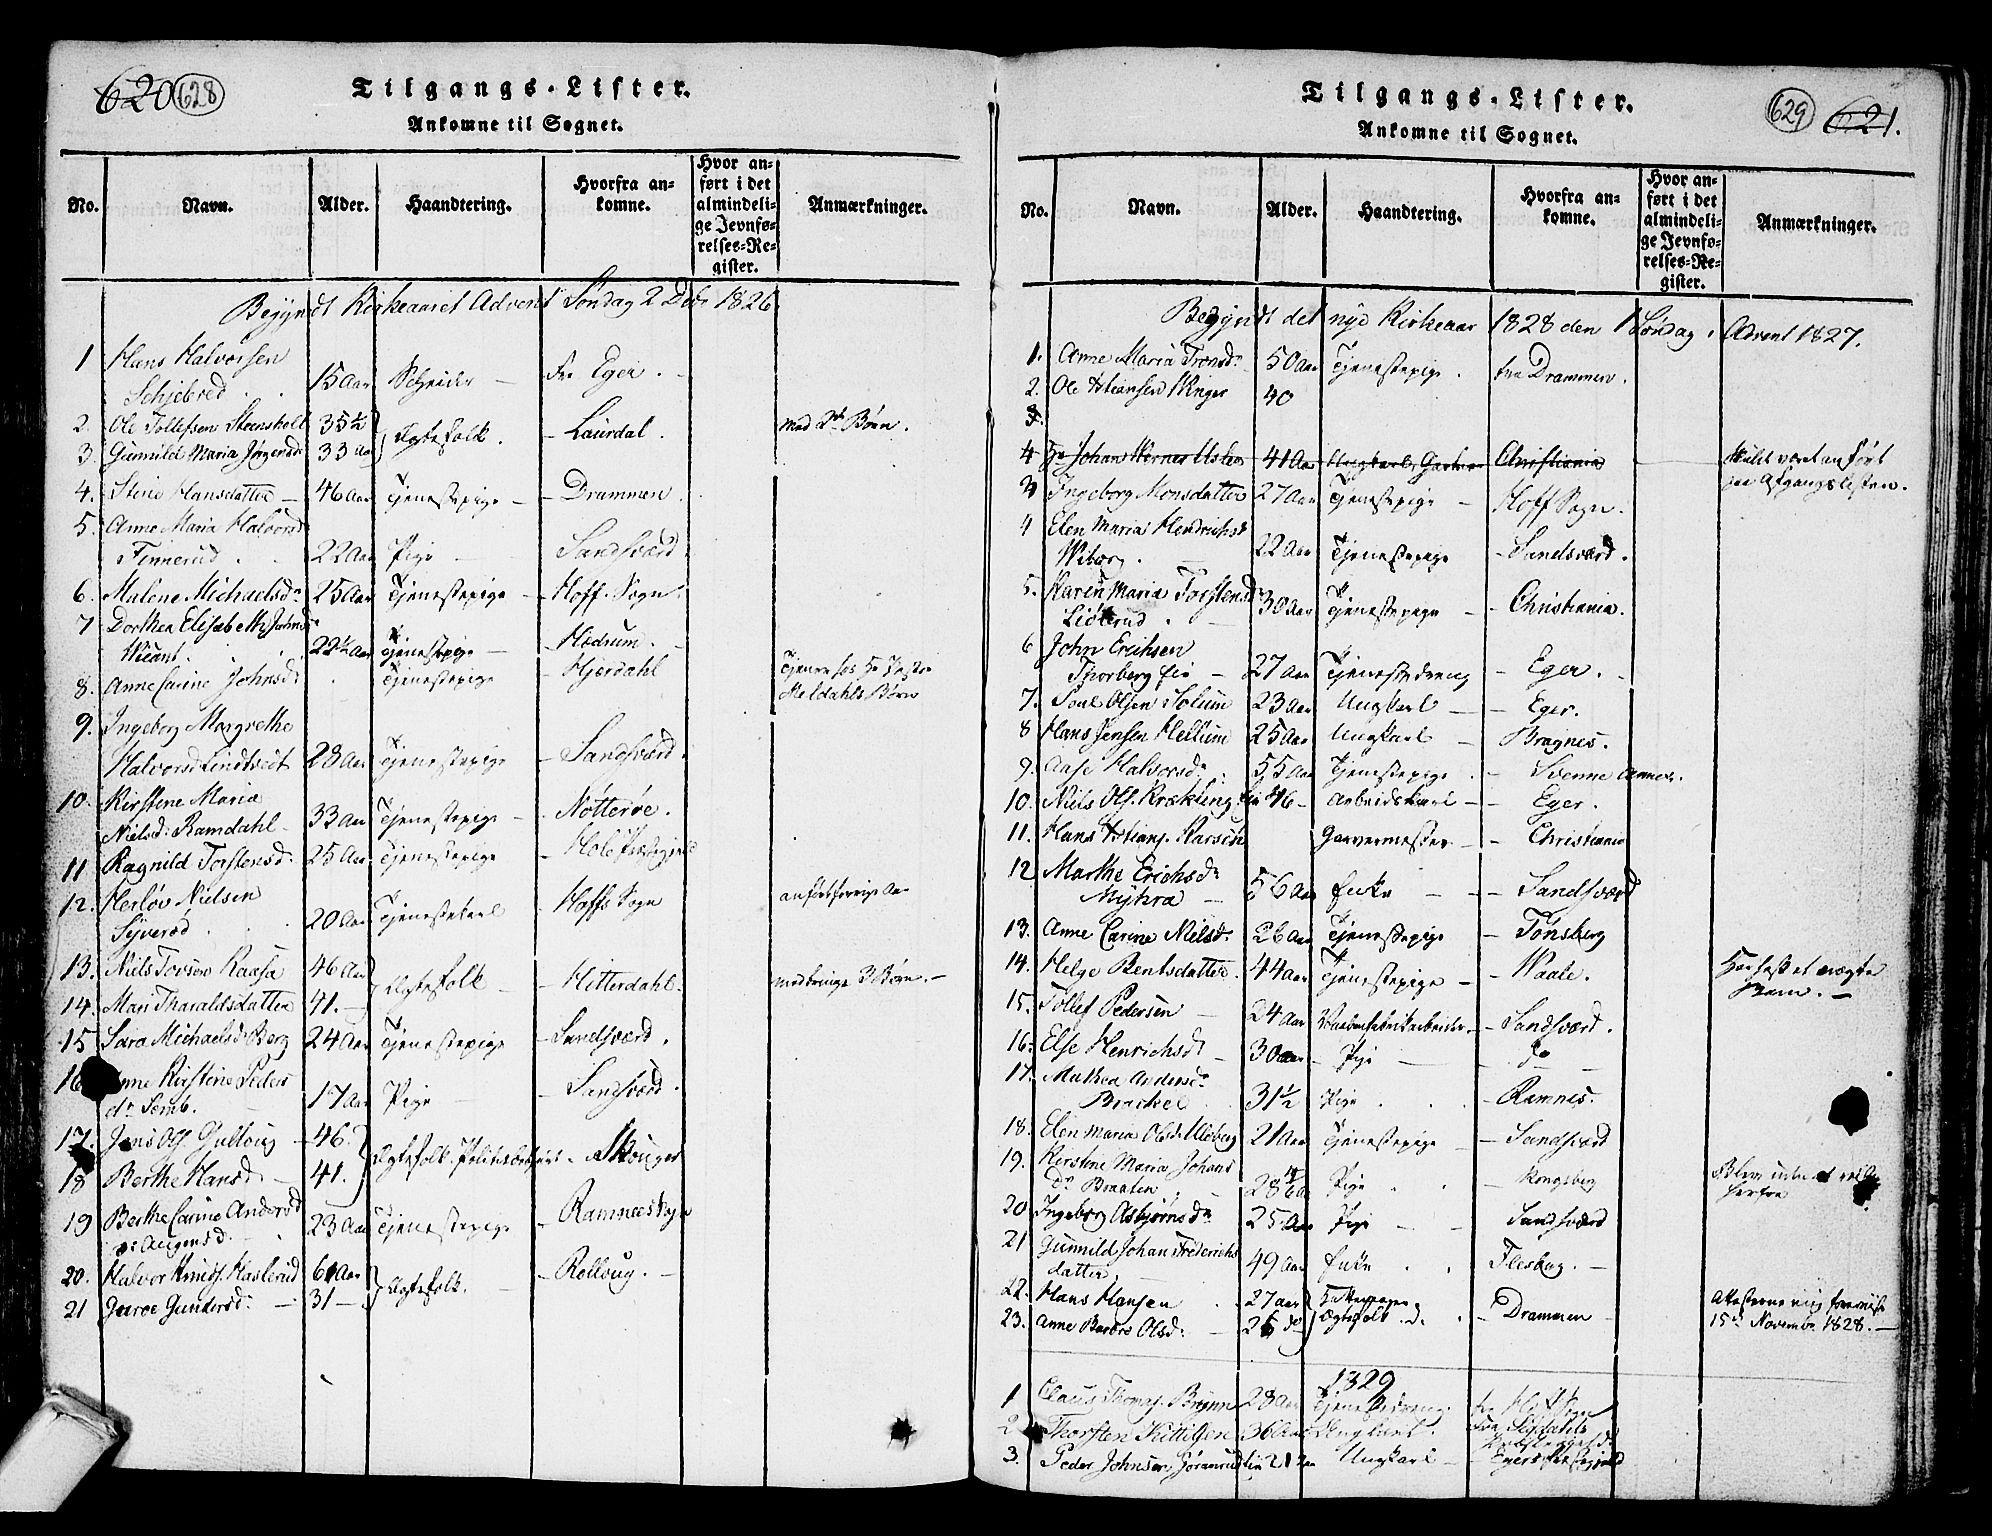 620 628
Tilgangs-Lister.
Ankomne til Sognet.
No. Navn. Alder. Haandtering. Hvorfra ankomne. Hvor anført i det almindelige Jevnførelses-Register. Anmærkninger.
Begyndt Kirkeaaret Advent Søndag 2 Decbr 1826
1 Hans Halvorsen
Schjebred 15 Aar Schneider fra Eger.
2. Ole Tollefsen Steensholt 35½ Ægtefolk. Laurdal. med Børn.
3. Gunnild Maria Jørgensd 33 Aar
4. Stine Hansdatter 46 Aar Tjenestepige Drammen.
5. Anne Maria Halvorsd
Finnerud 22 Aar Pige Sandsværd.
6. Malene Michaelsdr 25 Aar Tjenestepige Hoff Sogn.
7 Dorthea Elisabeth Johnsd
22½ Aar Tjenestepige Hedrum.
8. Anne Carine Johnsd Tjenestepige Hjerdahl Tjener hos Hr
Meldahls Børn
9. Ingeborg Margrethe
Halvorsd Lindtvedt 28 Aar Tjenestepige Sandsværd.
10. Kirstine Maria
Nielsd: Ramdahl 33 Aar Tjenestepige Nøtterøe.
11 Ragnild Torstensd: 25 Aar Tjenestepige Hole
12. Herløv Nielsen
Syverød 20 Aar Tjenestekarl Hoffs Sogn anført forrige Aar
13. Niels Torsen Raasa 46 Aar Ægtefolk Hitterdahl. medbringe 3 Børn.
14. Mari Tharaldsdatter 41.
15 Sara Michaelsd: Berg 24 Aar Tjenestepige Sandsværd.
16 Anne Kirstine Peders
dr Semb. 17 Aar Pige Sandsværd.
17. Jens Ols. Gulloug 46. Ægtefolk. Skouger
18 Berthe Hansd 41.
19 Berthe Carine Andersd
23 Aar Tjenestepige Ramnes Sogn
20. Halvor Knuds. Haslerud 61 Aar Ægtefolk. Rolloug.
21 Guroe Gundersd: 31
629 621.
Tilgangs-Lister.
Ankomne til Sognet.
No. Navn. Alder. Haandtering. Hvorfra ankomne. Hvor anført i det almindelige Jevnførelses-Register. Anmærkninger.
Begyndt det nye Kirkeaar 1828 den 1 Søndag i Advent 1827.
1. Anne Maria Tronsdr 50 Aar Tjenestepige. fra Drammen.
2. Ole Christiansen Ringer 40
3.
4 Hr Johan Werner 41 Aar Christiania skulde været anført
paa Afgangslisten.
3 Ingeborg Monsdatter 27 Aar Tjenestepige Hoff Sogn.
4 Elen Maria Hendrichsd
Wiborg. 22 Aar Tjenestepige Sandsværd.
5. Karen Maria Torstensd
30 Aar Tjenestepige Christiania.
6 John Erichsen
Thorberg eie 27 Aar Tjenestedreng Eger.
7. Poul Olsen Solum 23 Aar Ungkarl Eger.
8 Hans Jensen Hellum 25 Aar Ungkarl Bragnes.
9. Aase Halvorsdr. 55 Aar Tjenestepige Svenne Annex.
10. Niels Ols. Krækling eie 46 Arbeidskarl Eger.
11. Hans Christians. Garvermester Christiania
12 Marthe Erichsdr
Myhra 56 Aar Enke Sandsværd
13. Anne Carine Nielsd. 26 Aar Tjenestepige Tønsberg
14. Helge Bentsdatter. 44 Aar Tjenestepige Waale. Har født et uægte
Barn.
15. Tollef Pedersen 24 Aar Vaabenfabrikarbeider. Sandsværd.
16. Else Henrichsd: 30 Aar Pige do
17. Mathea Andersdr
Brackel 31½ Pige Ramnes.
18. Elen Maria Olsd: 21 Aar Tjenestepige Sandsværd
19. Kirstine Maria Johans
dr Braaten 28 Aar Pige Kongsberg
herfra
20 Ingeborg Asbjørnsdr 25 Aar Pige Sandsværd
21 Gunnild Johan Frederichs
datter 49 Aar Enke Flesberg.
22. Hans Hansen 27 Aar Drammen
23. Anne Berthe Olsd. 26 do Ægtefolk 15de Novembr 1828.
1829
1 Claus Thomas. Brynn 28 Aar Tjenestedreng fra Hoff Sogn
2 Thorsten Kittilsen 36 Aar Ungkarl. fra
3. Peder Johnsen eie 21 Aar Ungkarl Egers